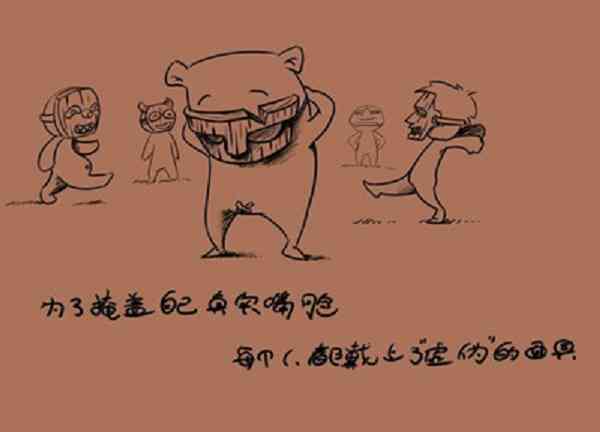 为了掩盖自己真实嘴脸
每个人都戴上了"虚伪"的面具